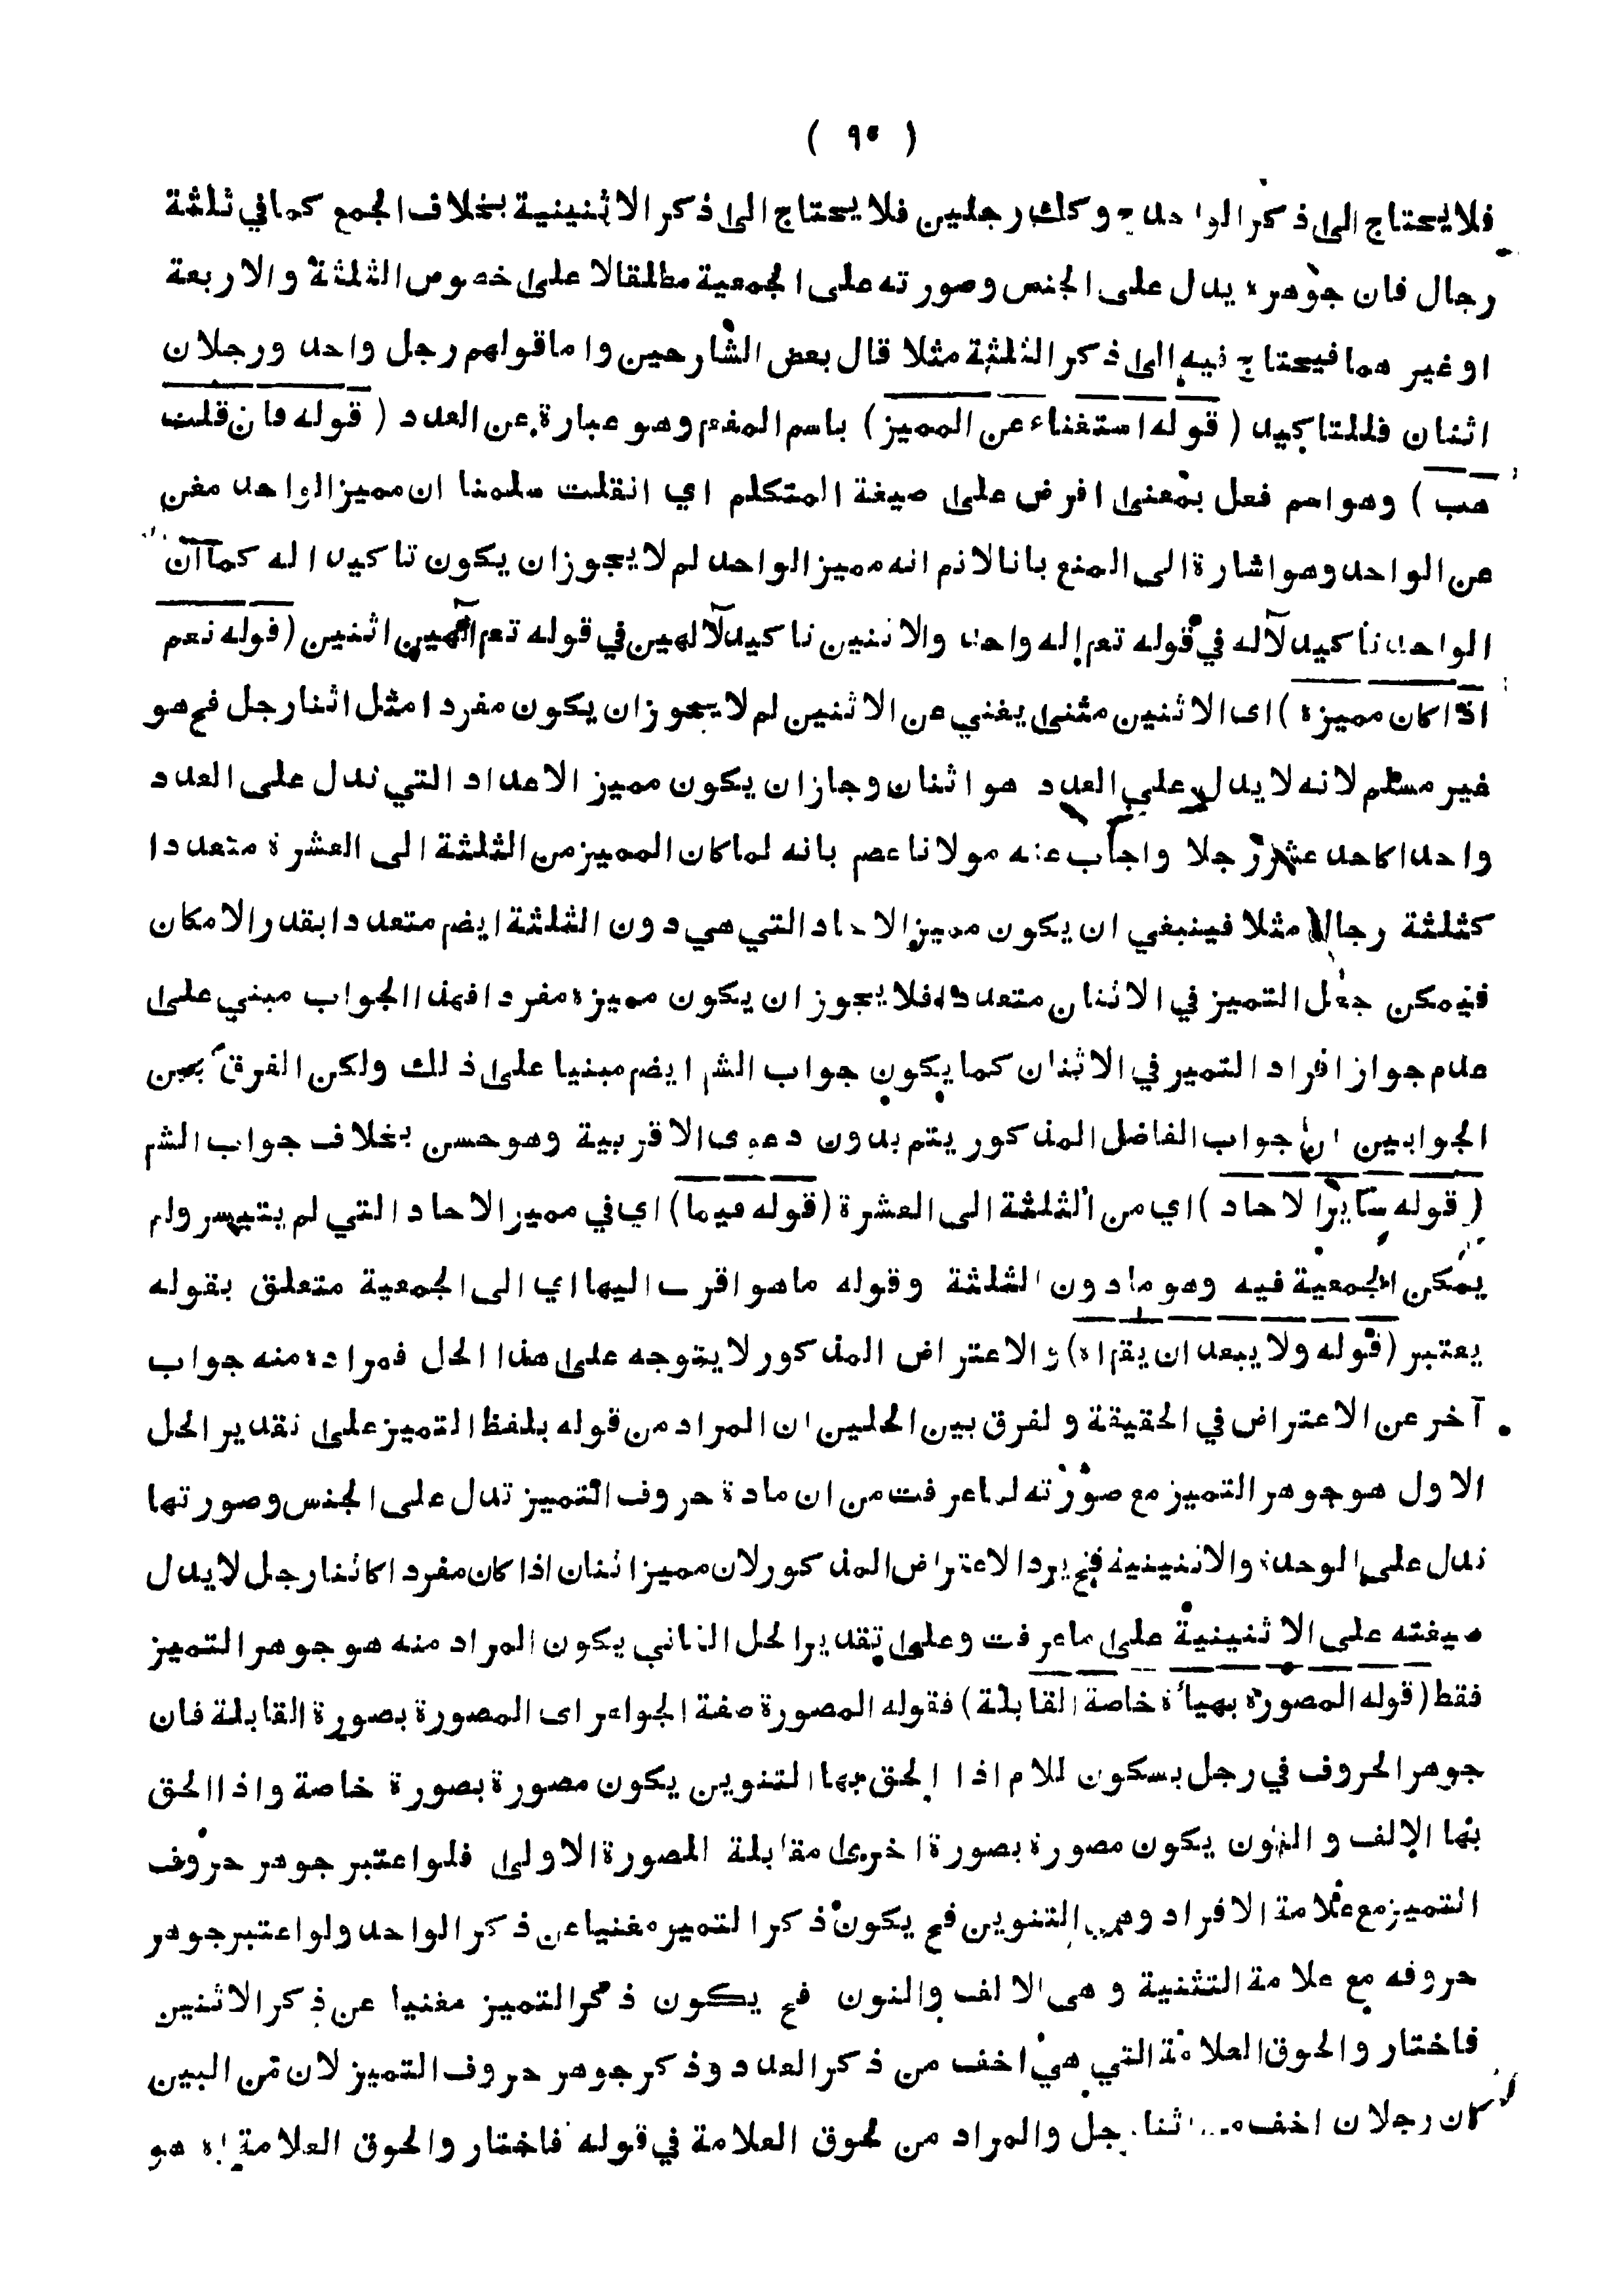 ( ٩٥ )
فلا يحتاج الى ذكر الواحد وكك رجلين فلا يحتاج الى ذكر الاثنينية بخلاف الجمع كما في ثلثة
رجال فان جوهره يدل على الجنس وصورته على الجمعية مطلقا لا على خصوص الثلثة والاربعة
او غير هما فيحتاج فيه الى ذكر الثلثة مثلا قال بعض الشارحين واما قولهم رجل واحد ورجلان
اثنان فللتاكيد ( قوله استغناء عن المميز ) باسم المفعم وهو عبارة عن العدد ( قوله فان قلت
هب ) وهو اسم فعل بمعنى افرض على صيغة المتكلم اي انقلت سلمنا ان مميز الواحد مغن
عن الواحد وهو اشارة الى المنع بانا لانم انه مميز الواحد لم لا يجوز ان يكون تاكيدا له كما ان
الواحد تاكيد لآله في قوله تعم إله واحد والاثنين تاكيد لآلهين في قوله تعم آلهين اثنين ( قوله نعم
اذا كان مميزه ) اى الاثنين مثنى يغني عن الاثنين لم لا يجوز ان يكون مفردا مثل اثنا رجل فح هو
غير مسلم لانه لا يدل على العدد هو اثنان وجاز ان يكون مميز الاعداد التي تدل على العدد
واحدا كاحد عشر رجلا واجاب عنه مولانا عصم بانه لما كان المميز من الثلثة الى العشرة متعددا
كثلثة رجال مثلا فينبغي ان يكون مميز الاحاد التي هي دون الثلثة ايضم متعددا بقدر الامكان
فيمكن جعل التميز في الاثنان متعددا فلا يجوز ان يكون مميزه مفردا فهذا الجواب مبني على
عدم جواز افراد التميز في الاثنان كما يكون جواب الشم ايضم مبنيا على ذلك ولكن الفرق بين
الجوابين ان جواب الفاضل المذكور يتم بدون دعوى الاقربية وهو حسن بخلاف جواب الشم
( قوله سآير الاحاد ) اي من الثلثة الى العشرة ( قوله فيما ) اي في مميز الاحاد التي لم يتيسر ولم
يمكن الجمعية فيه وهو ما دون الثلثة وقوله ما هو اقرب اليها اي الى الجمعية متعلق بقوله
يعتبر ( قوله ولا يبعد ان يقراه ) والاعتراض المذكور لا يتوجه على هذا الحل فمراده منه جواب
آخر عن الاعتراض في الحقيقة ولفرق بين الحلين ان المراد من قوله بلفظ التميز على تقدير الحل
الاول هو جوهر التميز مع صورته لما عرفت من ان مادة حروف التميز تدل على الجنس وصورتها
تدل على الوحدة والاثنينية فح يرد الاعتراض المذكور لان مميز اثنان اذا كان مفردا كاثنا رجل لا يدل
صيغته على الاثنينية على ما عرفت وعلى تقدير الحل الثاني يكون المراد منه هو جوهر التميز
فقط ( قوله المصورة بهيأة خاصة القابلة ) فقوله المصورة صفة الجواهر اى المصورة بصورة القابلة فان
جوهر الحروف في رجل بسكون للام اذا الحق بها التنوين يكون مصورة بصورة خاصة واذا الحق
بها الالف والنون يكون مصورة بصورة اخرى مقابلة للصورة الاولى فلو اعتبر جوهر حروف
التميز مع علامة الافراد وهي التنوين فح يكون ذكر التميز مغنيا عن ذكر الواحد ولو اعتبر جوهر
حروفه مع علامة التثنية وهى الالف والنون فح يكون ذكر التميز مغنيا عن ذكر الاثنين
فاختار والحوق العلامة التي هي اخف من ذكر العدد وذكر جوهر حروف التميز لان من البين
كان رجلان اخف من اثنا رجل والمراد من لحوق العلامة في قوله فاختار والحوق العلامة اه هو